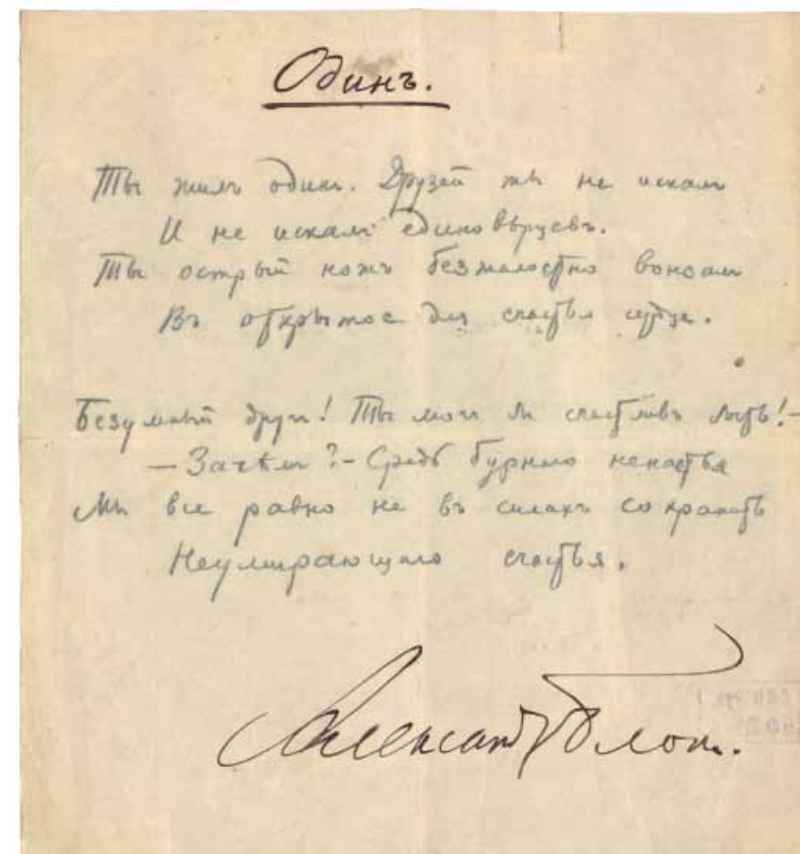 Одинъ.
Ты жилъ одинъ. Друзей ты не искалъ
И не искалъ единовѣрцевъ.
Ты острый ножъ безжалостно вонзалъ
Въ открытое для счастья сердце.
Безумный другъ! Ты могъ бы счастливъ быть! –
– Зачѣмъ? – Средь бурнаго ненастья
Мы все равно не въ силахъ сохранить
Неумирающаго счастья.
Александръ Блокъ.